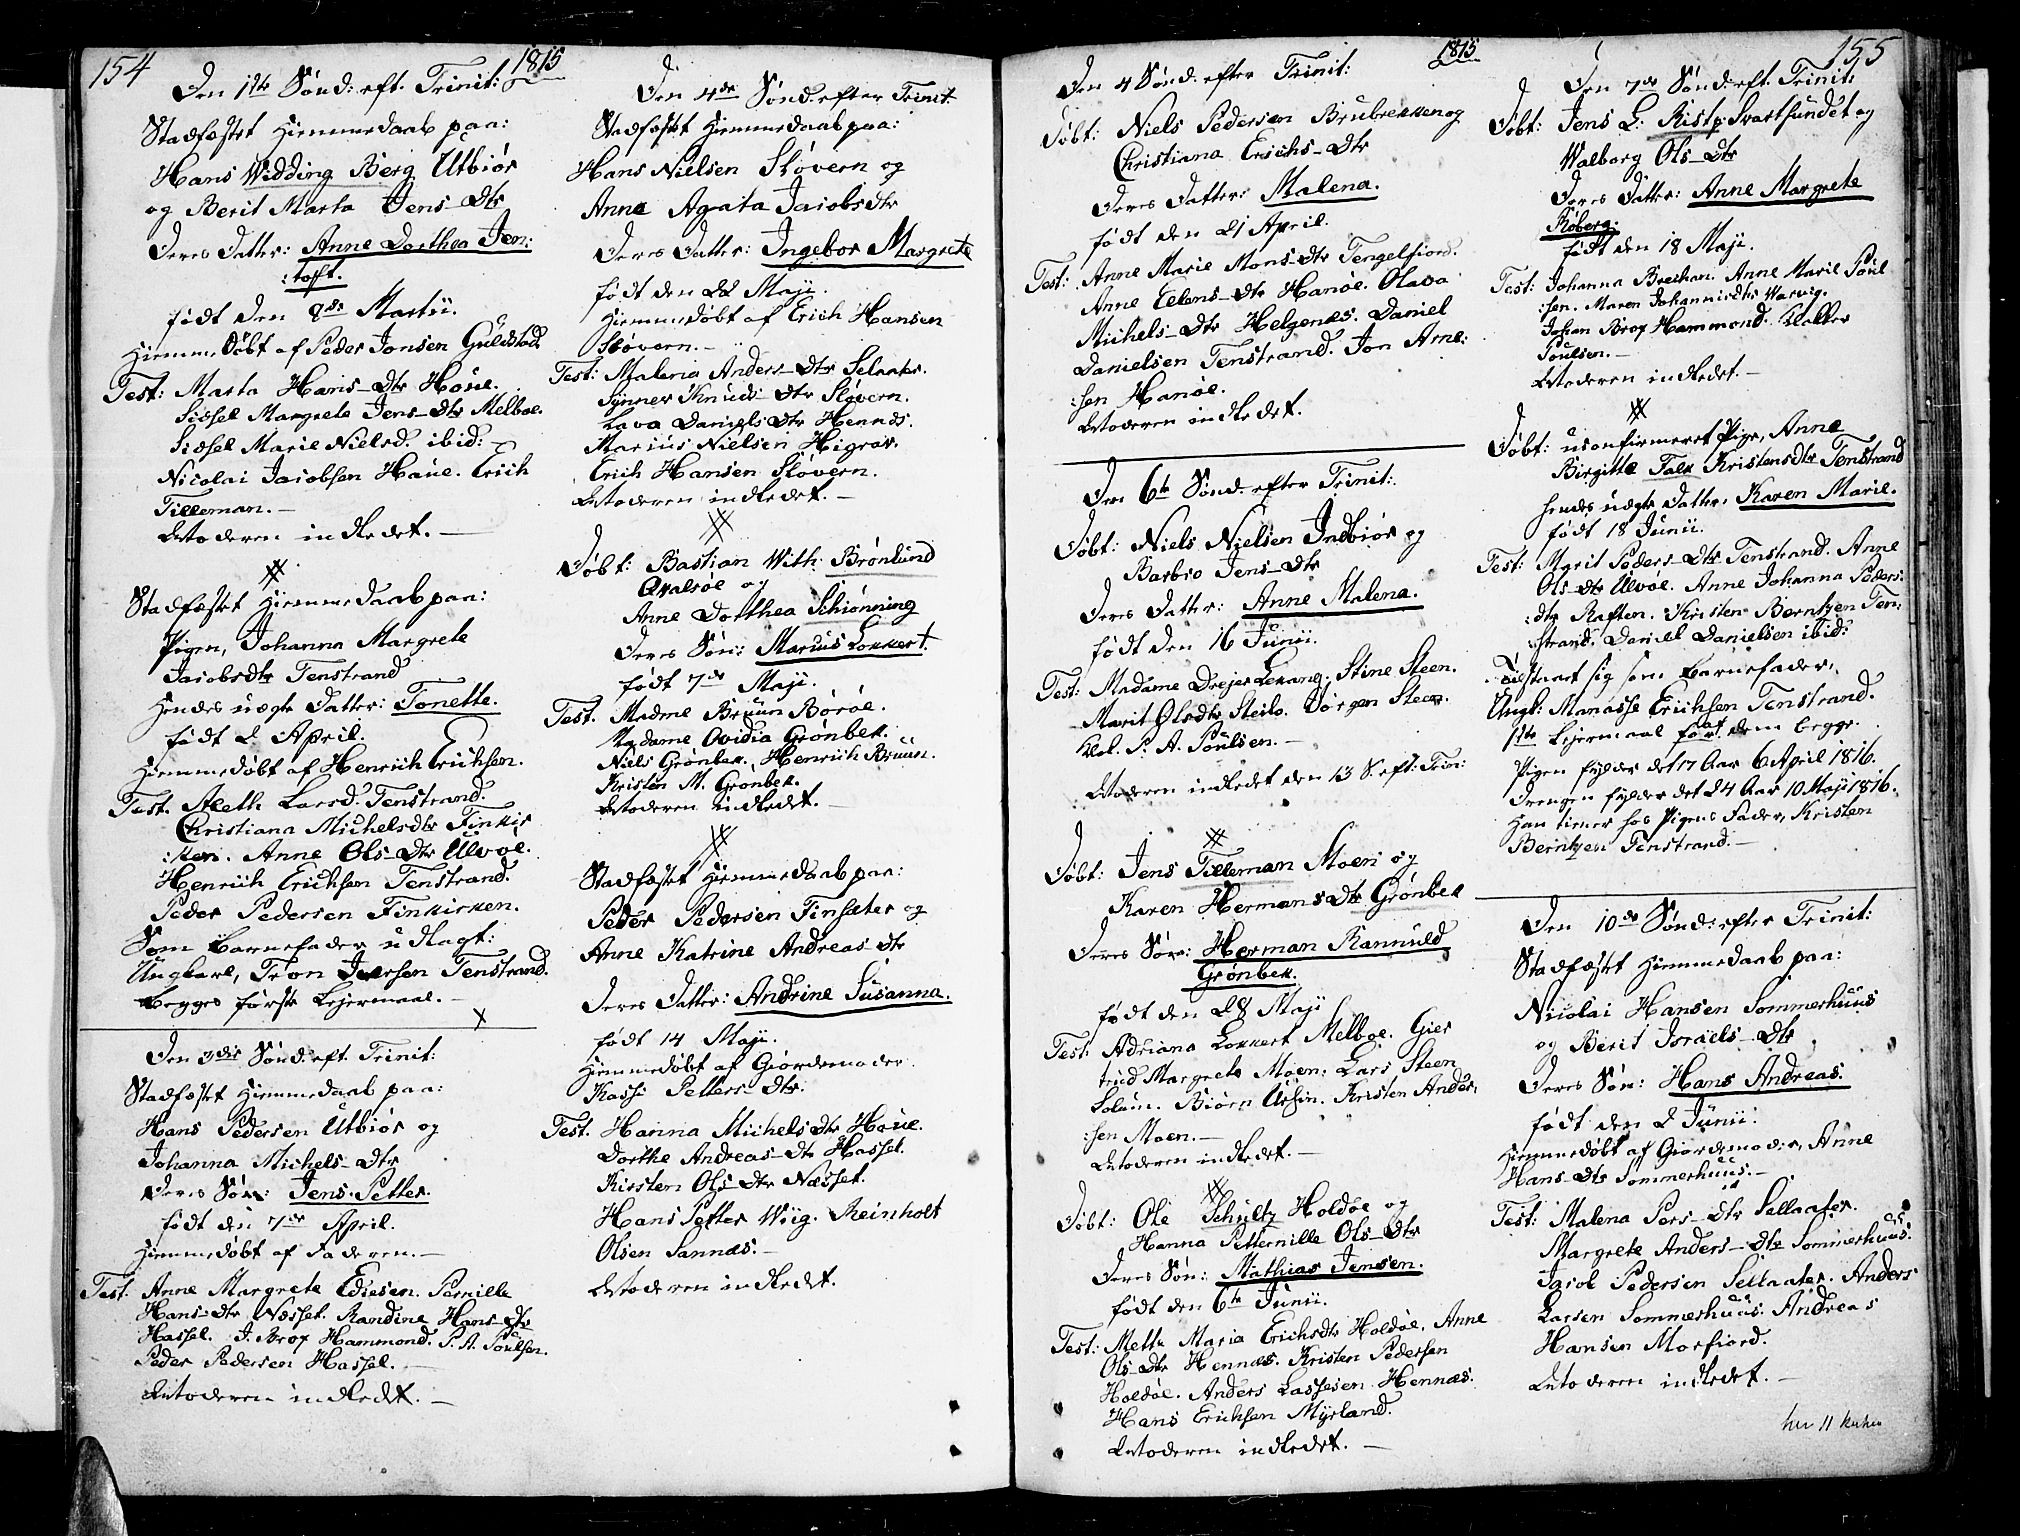 154
1815
Den 1ste Sønd: eft. Trinit:
Stadfæstet Hiemmedaab paa:
Hans Widding Berg Utbiør
og Berit Marta Jens-Dtr
Deres Datter: Anne Dorthea Jen:
:toft.
født den 9de Martii.
Hiemmedøbt af Peder Jonsen Guldstad
Test: Marta Hans-Dtr Houe.
Sidsel Margrete Jens-Dtr Melboe.
Sidsel Marie Nielsd. ibid:
Nicolai Jacobsen Haue. Erich
Tilleman.-
Moderen indledet.-
Stadfæstet Hiemmedaab paa:
Pigen, Johanna Margrete
Jacobsdtr Tenstrand
Hendes uægte Datter: Tonette.
født 2 April.
Hiemmedøbt af Henrich Erichsen.
Test. Aleth Larsd. Tenstrand.
Christiana Michelsdtr Finkir
:ken. Anne Ols-Dtr Ulvøe.
Henrich Erichsen Tenstrand.
Peder Pedersen Finkirken.
Som Barnefader udlagt:
Ungkarl, Tron Iversen Tenstrand.
begges første Lejermaal.-
Den 3die Sønd: eft. Trinit:
Stadfæstet Hiemmedaab paa:
Hans Pedersen Utbiør og
Johanna Michels-Dtr
Deres Søn: Jens Petter.
født den 7de April.
Hiemmedøbt af Faderen.-
Test. Anne Margrete Ediesen. Pernille
Hans-Dtr Næsset. Randine Hans-Dtr
Hassel. J. Brox Hammond. P. A. Poulsen.
Peder Pedersen Hassel.-
Moderen indledet.-
Den 4de Sønd: efter Trinit:
Stadfæstet Hiemmedaab paa:
Hans Nielsen Sløvern og
Anna Agata Jacobsdtr
Deres Datter: Ingebor Margrete
født den 22 Maji.
Hiemmedøbt af Erich Hansen
Sløvern.-
Test: Malena Anders-Dtr Selaater.
Synner Knuds-Dtr Sløvern.
Lava Daniels Dtr Hennes.
Marius Nielsen Higrav.
Erich Hansen Sløvern.
Moderen indledet.-
Døbt: Bastian With: Brønlund
Qvalsøe og
Anne Dorthea Schiønning
Deres Søn: Marius Lokkert.
født 7de Maji.
Test. Madme Bruun Børøe.
Madame Ovidia Grønbek.
Niels Grønbek. Henrich Bruun.
Kristen M. Grønbek.
Moderen indledet.-
Stadfæstet Hiemmedaab paa:
Peder Pedersen Finsæter og
Anne Katrine Andreas-Dtr
Deres Datter: Andrine Susanna.
født 14 Maji.
Hiemmedøbt af Giordemoder
Kassi Petters-Dtr.
Test. Hanna Michels Dtr Houe.
Dorthe Andreas-Dtr Hassel.
Kirsten Ols-Dtr Næsset.
Hans Petter Wiig. Reinholt
Olsen Sannæs.-
Moderen indledet.
1815
155
Den 4 Sønd: efter Trinit:
Døbt: Niels Pedersen Brubrekken og
Christiana Erichs-Dtr
Deres Datter: Malena.
født den 21 April.
Test: Anne Marie Mons-Dtr Tengelfiord.
Anne Ellens-Dtr Hanøe. Olava
Michels-Dtr Helgenæs. Daniel
Danielsen Tenstrand. Jon Arne:
:sen Hanøe.
Moderen indledet.
Den 6te Sønd. efter Trinit:
Døbt: Niels Nielsen Indbiør og
Barbro Jens-Dtr
Deres Datter: Anne Malena.
født den 16 Junii.
Test: Madame Drejer Lekang. Stine Steen.
Marit Olsdtr Steilo. Jørgen Steen.
Kl. P. A. Poulsen.-
Moderen indledet den 13 S. eft: Trin:
Døbt: Jens Tilleman Moen og
Karen Hermans Dtr Grønbek
Deres Søn: Herman Rannuld
Grønbek.
født den 28 Maji
Test: Adriana Lokkert Melboe. Gier
trud Margrete Moen. Lars Steen
Lolum. Biørn Ursin. Kristen Ander:
:sen Moen.-
Moderen indledet.-
Døbt: Ole Schultz Holdøe og
Hanna Petternille Ols-Dtr
Deres Søn: Mathias Jensen.
født den 6te Junii.
Test: Mette Maria Erichsdtr Holdøe. Anne
Ols-Dtr Hennæs. Kristen Pedersen
Holdøe. Anders Lassesen Hennæs.
Hans Erichsen Myrland.
Moderen indledet.-
Den 7de Sønd: eft. Trinit:
Døbt: Jens L: Rist p: Svartsundet og
Walborg Ols-Dtr
Deres Datter: Anne Margrete
Roberg.
født den 18 Maji.
Test: Johanna Breihan. Anne Marie Poul
:sen. Maren Johannisdtr Warvig.
Johan Brox Hammond. Klokker
Poulsen.-
Moderen indledet.-
Døbt: uconfirmeret Pige, Anne
Birgitte Falk Kristensdtr Tenstrand
hendes uægte Datter. Karen Marie.
født 18 Junii.
Test: Marit Peders-Dtr Tenstrand. Anne
Ols-Dtr Ulvøe. Anne Johanna Peders:
:dtr Raften. Kristen Berntzen Ten:
:strand. Daniel Danielsen ibid:
Tilstaaet sig som Barnefader,
Ungk: Manasse Erichsen Tenstrand.
1ste Lejermaal for dem begge.
Pigen fylder det 17 Aar 6 April 1816.
Drengen fylder det 24 Aar 10 Maji 1816.
Han tiener hos Pigens Fader, Kristen
Berntzen Tenstrand.-
Den 10de Sønd: efter Trinit:
Stadfæstet Hiemmedaab paa:
Nicolai Hansen Sommerhuus
og Berit Israels-Dtr
Deres Søn: Hans Andreas.
født den 2 Junii.
Hiemmedøbt af Giordemoder, Anne
Hans-Dtr Sommerhuus.-
Test: Malena Pers-Dtr Sellaater.
Margrete Anders-Dtr Sommerhuus.
Jacob Pedersen Sellaater. Anders
Larsen Sommerhuus. Andreas
Hansen Morfiord.
Moderen indledet.-
her 11